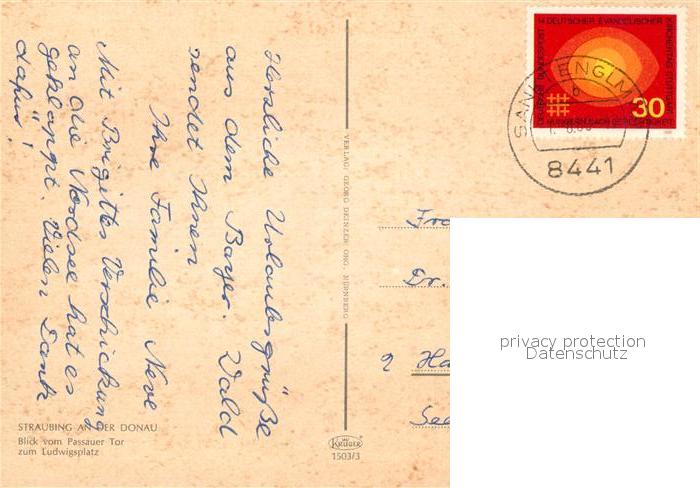 Herzliche Urlaubsgrüße
aus dem Bayer. Wald
sendet Ihnen
Ihre Familie Neve
Mit Brigittes Verschickung
an die Nordsee hat es
geklappt. Vielen Dank
dafür!
STRAUBING AN DER DONAU
Blick vom Passauer Tor
zum Ludwigsplatz
VERLAG: GEORG DEINZER OHG. NÜRNBERG
KRÜGER
1503/3
14. DEUTSCHER EVANGELISCHER
KIRCHENTAG STUTTGART
DEUTSCHE BUNDESPOST
HUNGERN NACH GERECHTIGKEIT
30
8441
Dr.
2 Ha
privacy protection
Datenschutz